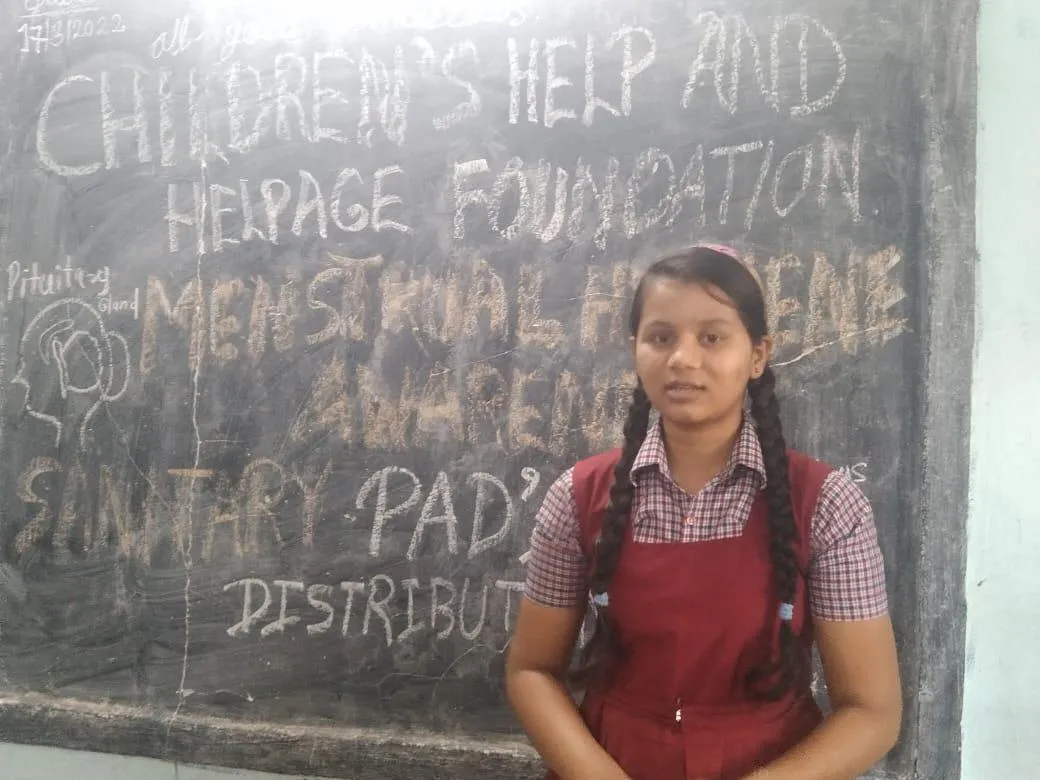 17/3/2022
all your
CHILDREN'S HELP AND
HELPAGE FOUNDATION
Pituitary
Gland
MENSTRUAL H ENE
SANITARY PAD'S
DISTRIBUT